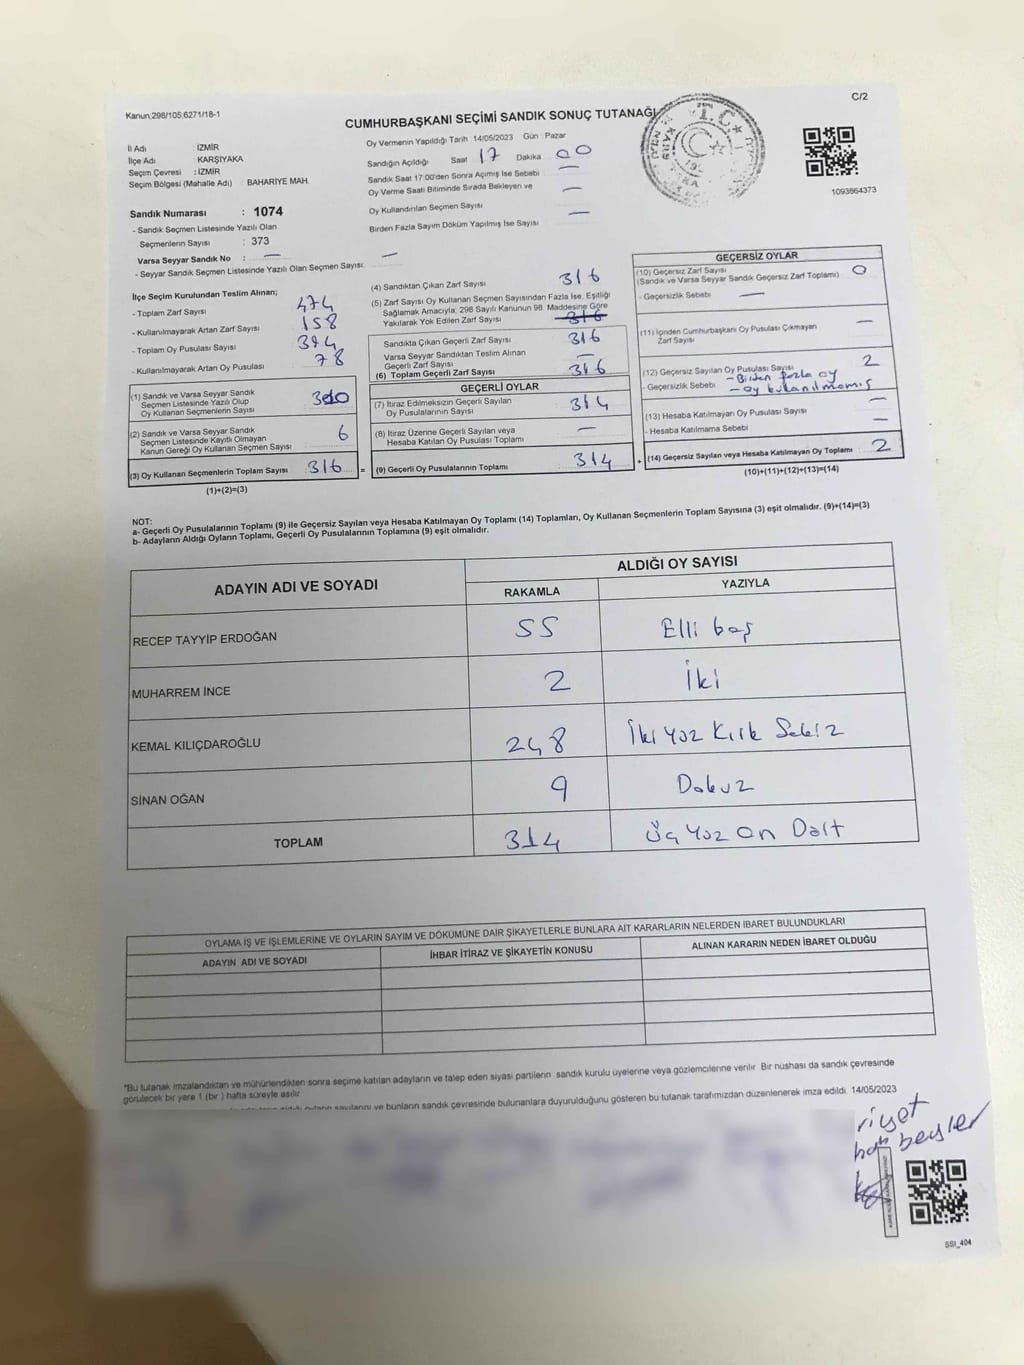 C/2
Kanun;298/105;6271/18-1
CUMHURBAŞKANI SEÇİMİ SANDIK SONUÇ TUTANAĞI
Oy Vermenin Yapıldığı Tarih 14/05/2023 Gün Pazar
İl Adı : İZMİR
İlçe Adı : KARŞIYAKA
Seçim Çevresi : İZMİR
Seçim Bölgesi (Mahalle Adı) : BAHARİYE MAH.
Sandığın Açıldığı Saat 17 Dakika 00
Sandık Saat 17:00'den Sonra Açımış İse Sebebi —
Oy Verme Saati Bitiminde Sırada Bekleyen ve —
Oy Kullandırılan Seçmen Sayısı
Birden Fazla Sayım Döküm Yapılmış İse Sayısı —
T.C
1093864373
Sandık Numarası : 1074
- Sandık Seçmen Listesinde Yazılı Olan
Seçmenlerin Sayısı : 373
Varsa Seyyar Sandık No : —
- Seyyar Sandık Seçmen Listesinde Yazılı Olan Seçmen Sayısı: —
İlçe Seçim Kurulundan Teslim Alınan;
- Toplam Zarf Sayısı 474
- Kullanılmayarak Artan Zarf Sayısı 158
- Toplam Oy Pusulası Sayısı 394
- Kullanılmayarak Artan Oy Pusulası 78
(1) Sandık ve Varsa Seyyar Sandık
Seçmen Listesinde Yazılı Olup
Oy Kullanan Seçmenlerin Sayısı 310
(2) Sandık ve Varsa Seyyar Sandık
Seçmen Listesinde Kayıtlı Olmayan
Kanun Gereği Oy Kullanan Seçmen Sayısı 6
(3) Oy Kullanan Seçmenlerin Toplam Sayısı 316 =
(1)+(2)=(3)
(4) Sandıktan Çıkan Zarf Sayısı 316
(5) Zarf Sayısı Oy Kullanan Seçmen Sayısından Fazla İse, Eşitliği
Sağlamak Amacıyla; 298 Sayılı Kanunun 98. Maddesine Göre
Yakılarak Yok Edilen Zarf Sayısı 316
Sandıkta Çıkan Geçerli Zarf Sayısı 316
Varsa Seyyar Sandıktan Teslim Alınan
Geçerli Zarf Sayısı —
(6) Toplam Geçerli Zarf Sayısı 316
GEÇERLİ OYLAR
(7) İtiraz Edilmeksizin Geçerli Sayılan
Oy Pusulalarının Sayısı 314
(8) İtiraz Üzerine Geçerli Sayılan veya
Hesaba Katılan Oy Pusulası Toplamı —
(9) Geçerli Oy Pusulalarının Toplamı 314 +
GEÇERSİZ OYLAR
(10) Geçersiz Zarf Sayısı
(Sandık ve Varsa Seyyar Sandık Geçersiz Zarf Toplamı) 0
- Geçersizlik Sebebi —
(11) İçinden Cumhurbaşkanı Oy Pusulası Çıkmayan
Zarf Sayısı —
(12) Geçersiz Sayılan Oy Pusulası Sayısı 2
- Geçersizlik Sebebi - Birden fazla oy
- oy kullanılmamış
(13) Hesaba Katılmayan Oy Pusulası Sayısı —
- Hesaba Katılmama Sebebi —
(14) Geçersiz Sayılan veya Hesaba Katılmayan Oy Toplamı 2
(10)+(11)+(12)+(13)=(14)
NOT:
a- Geçerli Oy Pusulalarının Toplamı (9) ile Geçersiz Sayılan veya Hesaba Katılmayan Oy Toplamı (14) Toplamları, Oy Kullanan Seçmenlerin Toplam Sayısına (3) eşit olmalıdır. (9)+(14)=(3)
b- Adayların Aldığı Oyların Toplamı, Geçerli Oy Pusulalarının Toplamına (9) eşit olmalıdır.
ADAYIN ADI VE SOYADI
ALDIĞI OY SAYISI
RAKAMLA YAZIYLA
RECEP TAYYİP ERDOĞAN 55 Elli beş
MUHARREM İNCE 2 İki
KEMAL KILIÇDAROĞLU 248 İki yüz Kırk Sekiz
SİNAN OĞAN 9 Dokuz
TOPLAM 314 Üç Yüz On Dört
OYLAMA İŞ VE İŞLEMLERİNE VE OYLARIN SAYIM VE DÖKÜMÜNE DAİR ŞİKAYETLERLE BUNLARA AİT KARARLARIN NELERDEN İBARET BULUNDUKLARI
ADAYIN ADI VE SOYADI İHBAR İTİRAZ VE ŞİKAYETİN KONUSU ALINAN KARARIN NEDEN İBARET OLDUĞU
*Bu tutanak imzalandıktan ve mühürlendikten sonra seçime katılan adayların ve talep eden siyasi partilerin sandık kurulu üyelerine veya gözlemcilerine verilir. Bir nüshası da sandık çevresinde
görülecek bir yere 1 (bir) hafta süreyle asılır.
oyların sayılarını ve bunların sandık çevresinde bulunanlara duyurulduğunu gösteren bu tutanak tarafımızdan düzenlenerek imza edildi. 14/05/2023
riyet
beyler
SSI_404